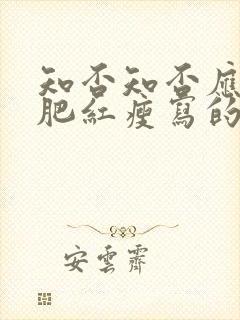 知否知否應
肥紅瘦寫的
安雲霽